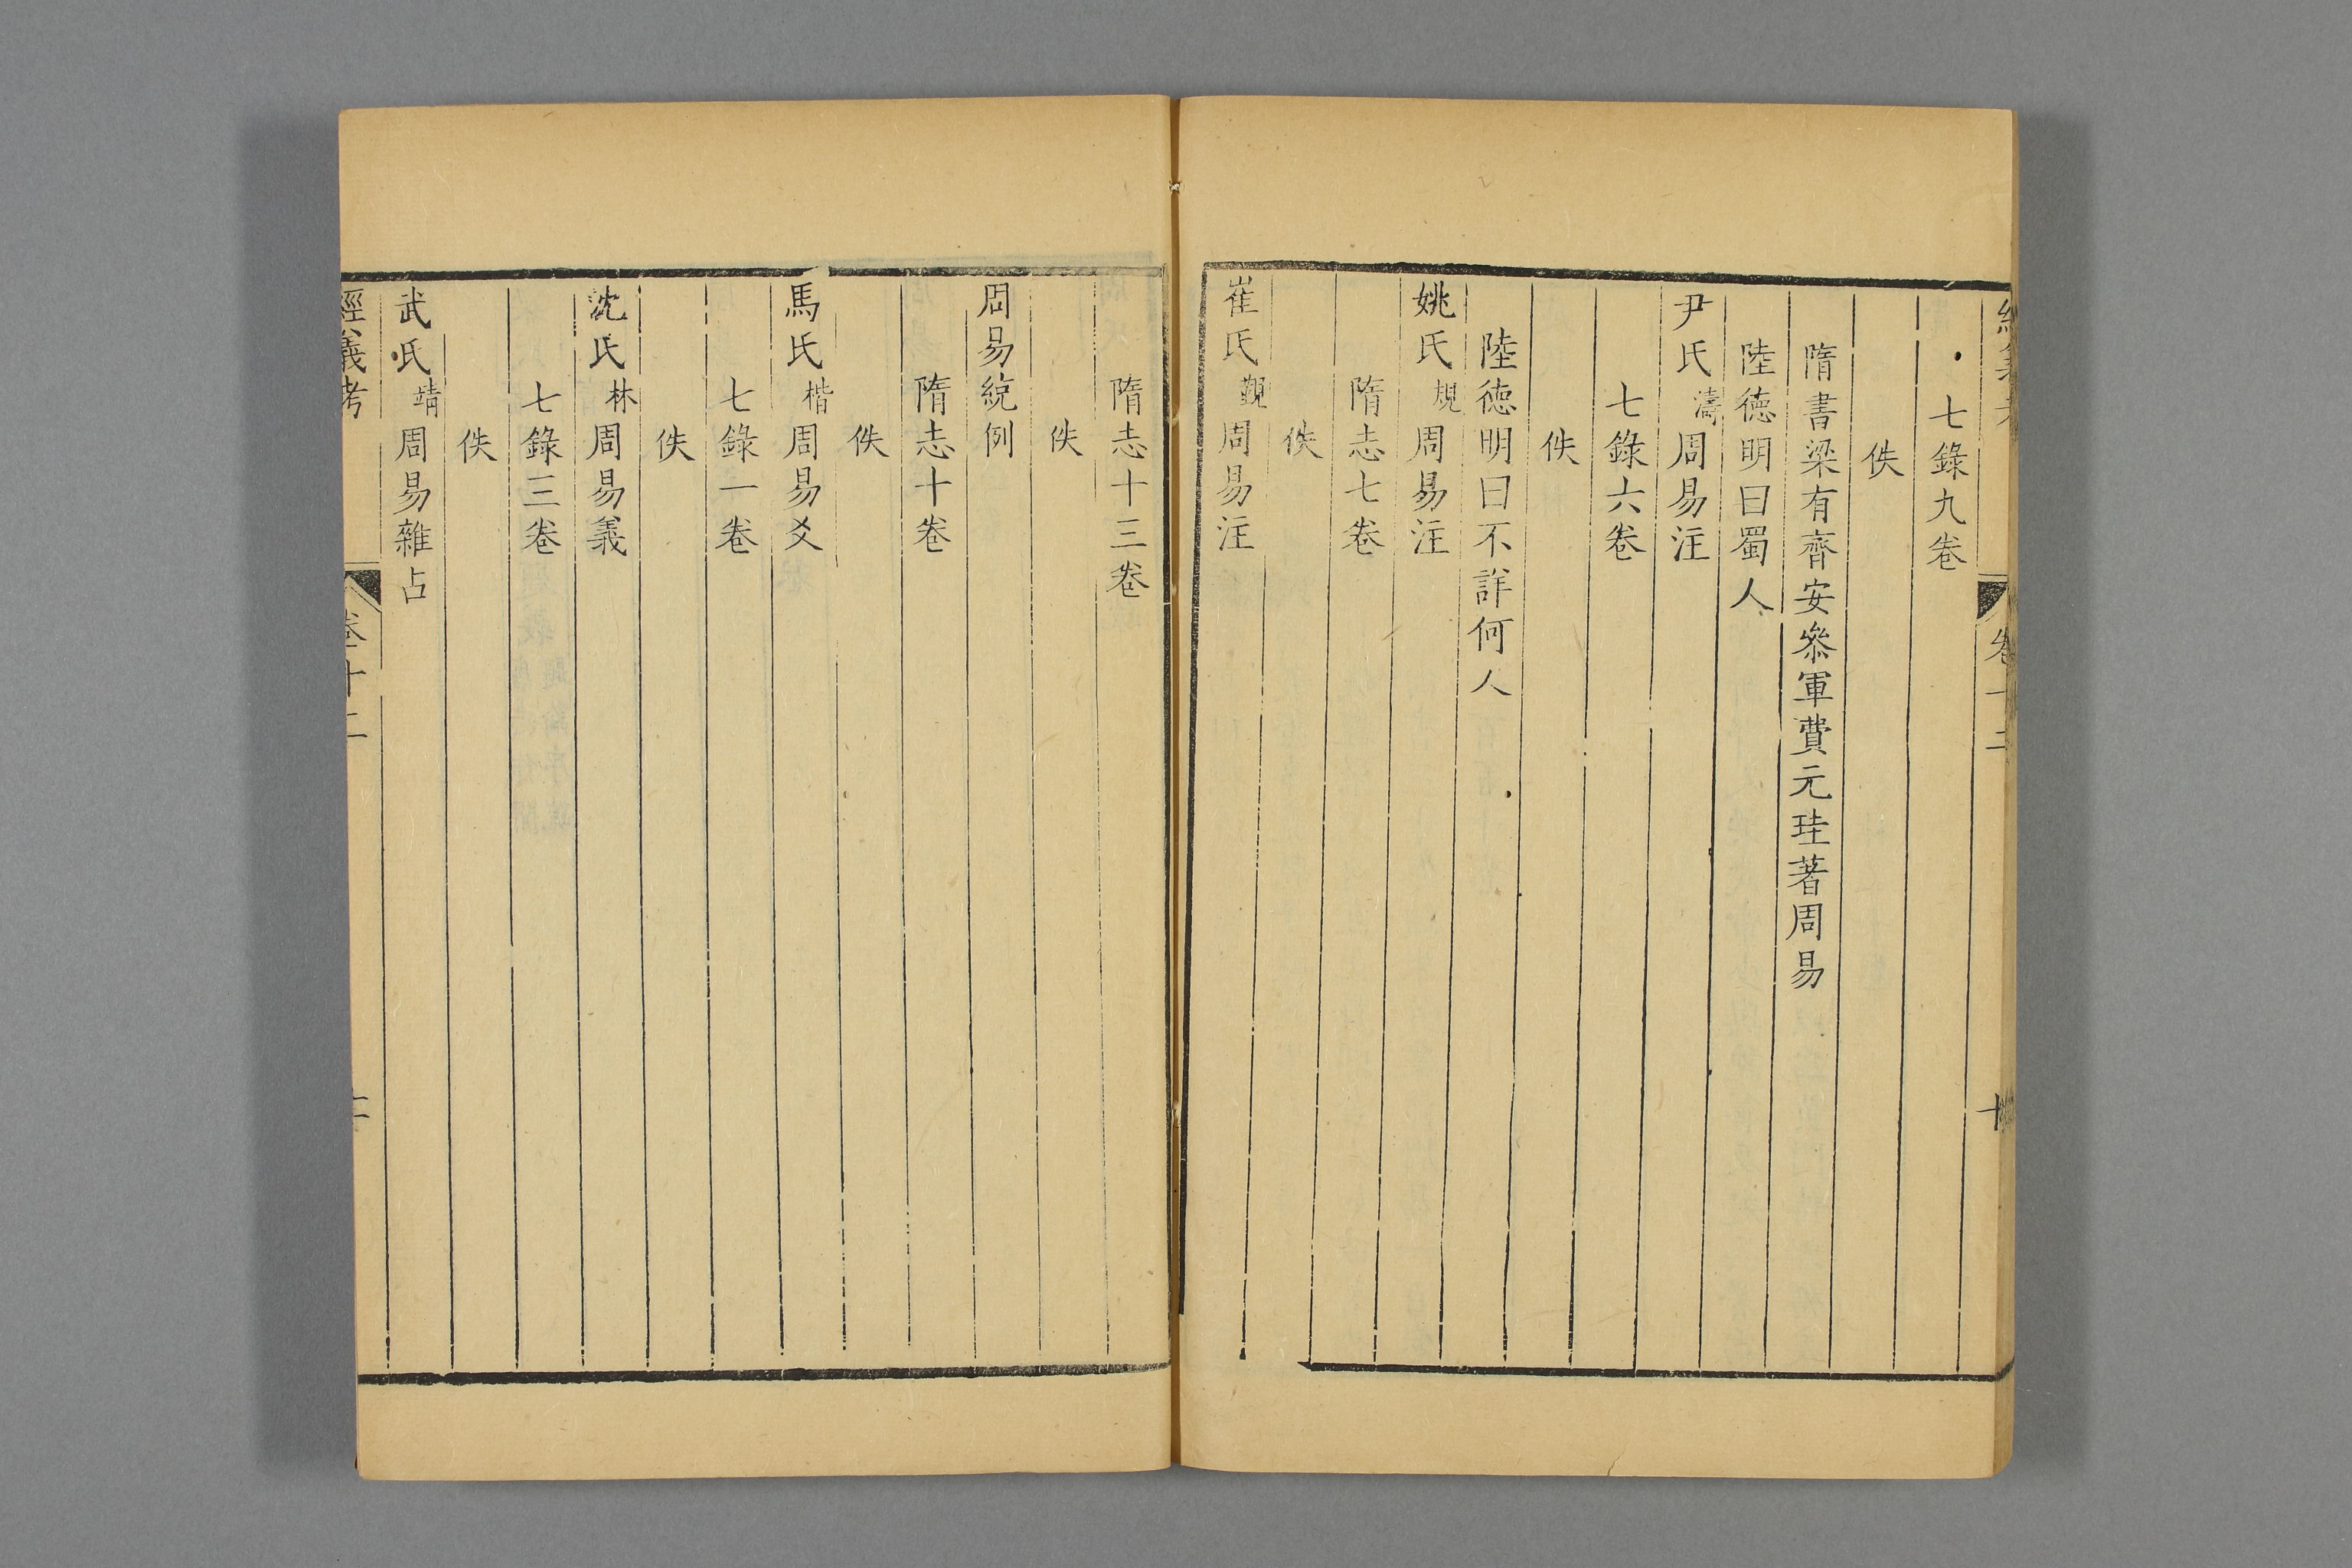 七錄九卷
佚
隋書梁有齊安叅軍費元珪著周易
陸德明曰蜀人
尹氏濤周易注
七錄六卷
佚
陸德明曰不詳何人
姚氏規周易注
隋志七卷
佚
崔氏覲周易注
隋志十三卷
佚
周易統例
隋志十卷
佚
馬氏楷周易爻
七錄一卷
佚
沈氏林周易義
七錄三卷
佚
武氏靖周易雜占
經義考 卷十二